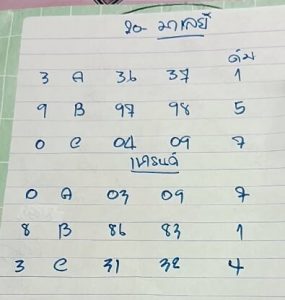 20 - มาเลย์
ดัม
3 A 36 37 1
9 B 97 98 5
0 C 04 09 7
เครนด์
0 A 03 09 7
8 B 86 83 1
3 C 31 32 4